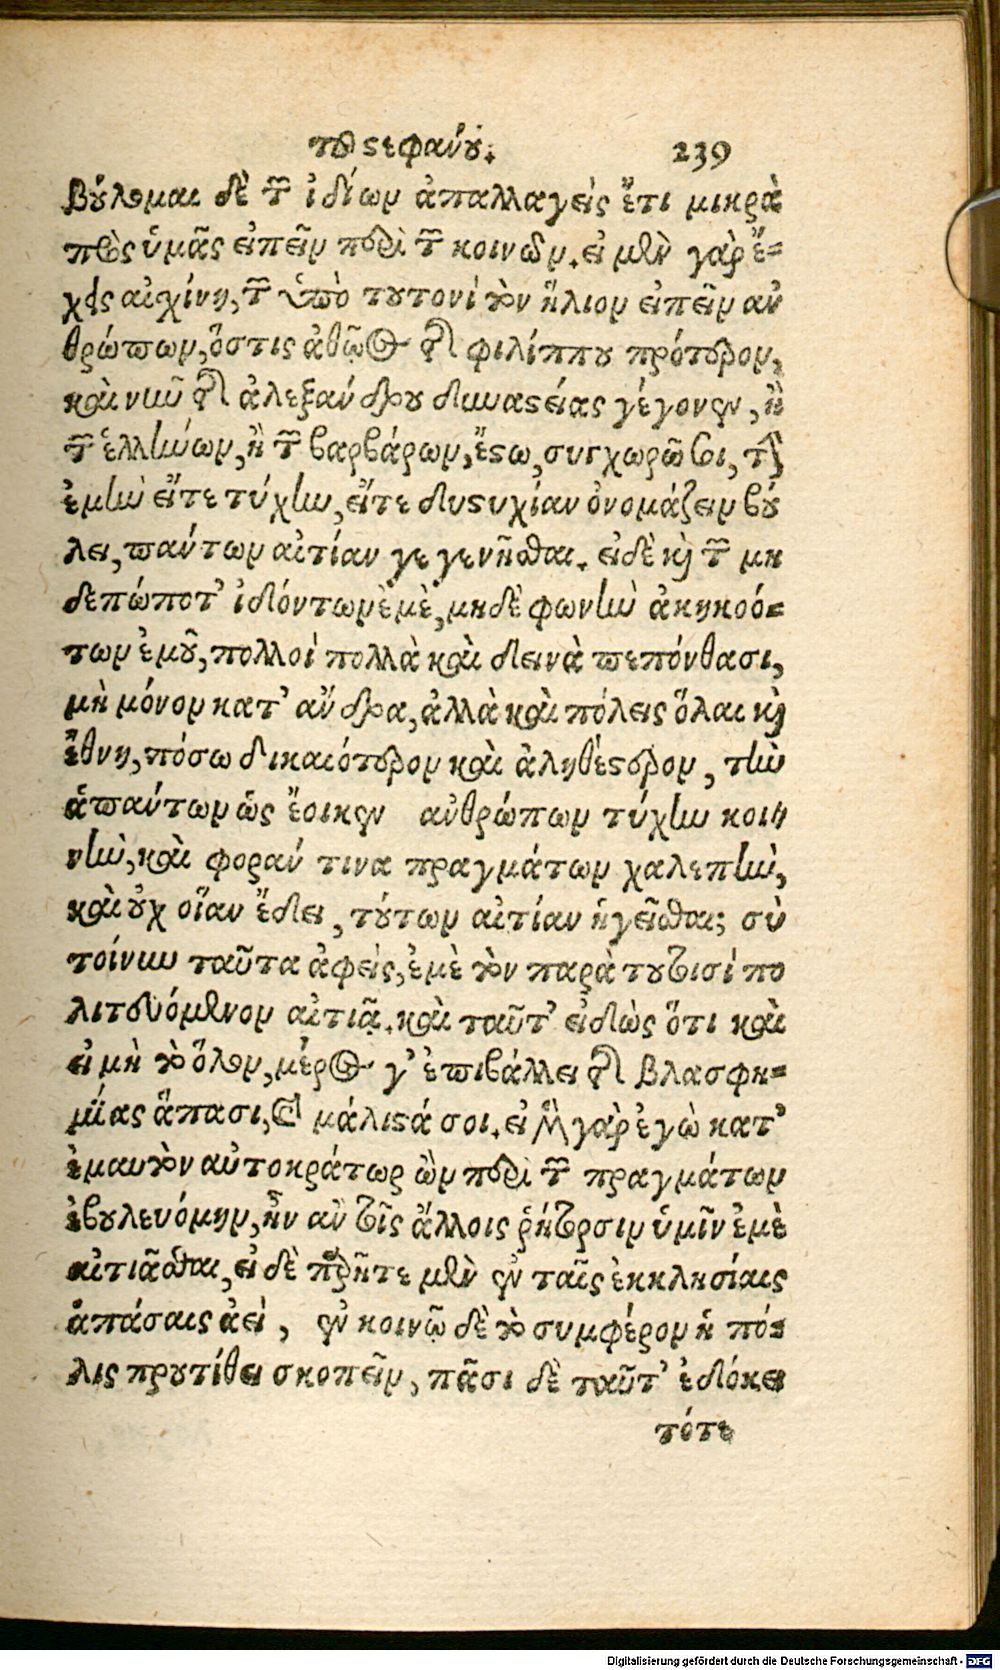 τοῦ στεφάνου. 239
Βούλομαι δὲ τῶν ἰδίων ἀπαλλαγεὶς ἔτι μικρὰ
πρὸς ὑμᾶς εἰπεῖν περὶ τῶν κοινῶν. εἰ μὲν γὰρ ἔ-
χεις αἰχίνη, τῶν ὑπὸ τουτονὶ τὸν ἥλιον εἰπεῖν ἀν
θρώπων, ὅστις ἀθῷος τῆς φιλίππου πρότερον,
καὶ νῦν τῆς ἀλεξάνδρου δυναστείας γέγονεν, ἢ
τῶν ἑλλήνων, ἢ τῶν βαρβάρων, ἔστω, συγχωρῶ σοι, τὴν
ἐμὴν εἴτε τύχην, εἴτε δυστυχίαν ὀνομάζειν βού
λει, πάντων αἰτίαν γεγενῆσθαι. εἰ δὲ καὶ τῶν μη
δεπώποτ' ἰδόντων ἐμὲ, μηδὲ φωνὴν ἀκηκοό-
των ἐμοῦ, πολλοὶ πολλὰ καὶ δεινὰ πεπόνθασι,
μὴ μόνον κατ' ἄνδρα, ἀλλὰ καὶ πόλεις ὅλαι καὶ
ἔθνη, πόσω δικαιότερον καὶ ἀληθέστερον, τὴν
ἁπάντων ὡς ἔοικεν ἀνθρώπων τύχην κοιν
νὴν, καὶ φοράν τινα πραγμάτων χαλεπὴν,
καὶ οὐχ οἵαν ἔδει, τούτων αἰτίαν ἡγεῖσθαι; σὺ
τοίνυν ταῦτα ἀφεὶς, ἐμὲ τὸν παρὰ τουτοισὶ πο
λιτευόμενον αἰτιᾷ. καὶ ταῦτ' εἰδὼς ὅτι καὶ
εἰ μὴ τὸ ὅλον, μέρος γ' ἐπιβάλλει τῆς βλασφη-
μίας ἅπασι, καὶ μάλιστά σοι. εἰ μὲν γὰρ ἐγὼ κατ'
ἐμαυτὸν αὐτοκράτωρ ὢν περὶ τῶν πραγμάτων
ἐβουλευόμην, ἦν ἂν τοῖς ἄλλοις ῥήτορσιν ὑμῖν ἐμὲ
αἰτιᾶσθαι, εἰ δὲ παρῆτε μὲν ἐν ταῖς ἐκκλησίαις
ἁπάσαις ἀεὶ, ἐν κοινῷ δὲ τὸ συμφέρον ἡ πό-
λις προυτίθει σκοπεῖν, πᾶσι δὲ ταῦτ' ἐδόκει
τότε
Digitalisierung gefördert durch die Deutsche Forschungsgemeinschaft - DFG